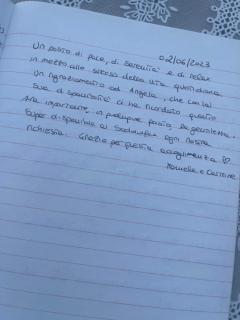 02/06/2023
Un posto di pace, di serenità e di relax
in mezzo allo stress della vita quotidiana.
Un ringraziamento ad Angela, che con la
sua disponibilità ci ha ricordato quanto
sia importante, in qualunque posto, la gentilezza.
Super disponibile a soddisfare ogni nostra
richiesta. Grazie per questa accoglienza ♡
e